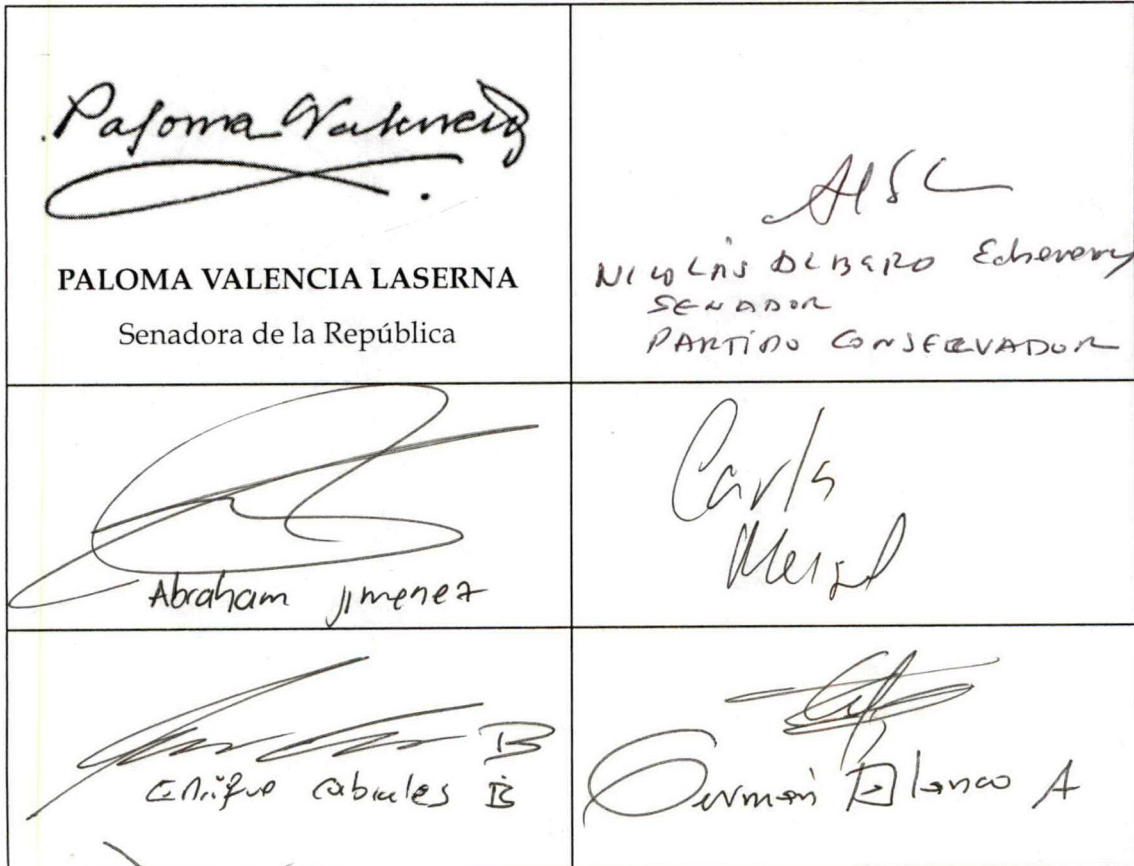 Paloma Valencia
PALOMA VALENCIA LASERNA
Senadora de la República
NICOLÁS ALBEIRO Echeverry
SENADOR
PARTIDO CONSERVADOR
Abraham Jimenez
Carlos
Meisel
Enrique cabrales B
Germán Blanco A